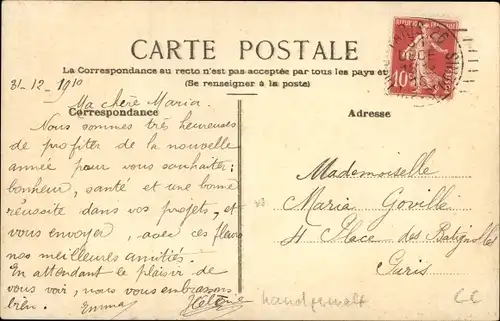 CARTE POSTALE
La Correspondance au recto n'est pas acceptée par tous les pays et
(Se renseigner à la poste)
31-12-1910
Correspondance
Ma chère Maria.
Nous sommes très heureuses
de profiter de la nouvelle
année pour vous souhaiter:
bonheur, santé et une bonne
réussite dans vos projets, et
vous envoyer, avec ces fleurs
nos meilleures amitiés.
En attendant le plaisir de
vous voir, nous vous embrassons
bien. Emma
Adresse
Mademoiselle
Maria Goville
Place des Batignolles
Paris
RÉPUBLIQUE FRANÇAISE
10
handgemalt
CC